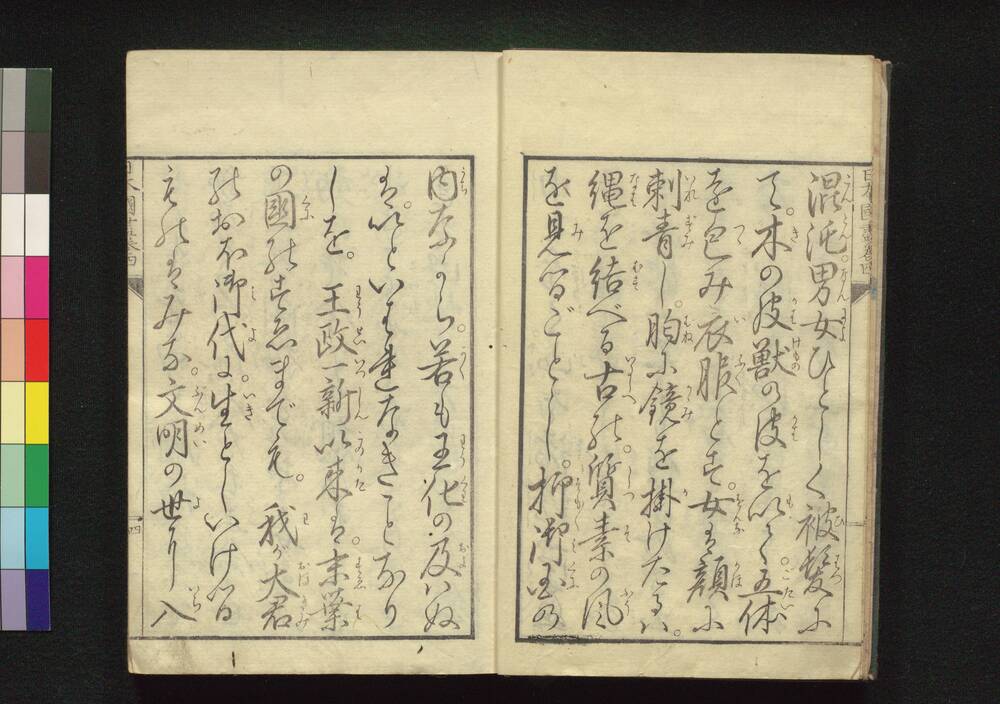 混沌。男女ひとしく被髪に
て。木の皮獣の皮を以て。五体
を包み衣服とす。女は顔に
刺青し。胸に鏡を掛けたるハ。
縄を結べる古の。質素の風
を見るごとし。抑御国の
内ながら。若も王化の及ハぬ
は。いといはれなきことなり
しを。王政一新以来は。末葉
の国のすゑまでも。我が大君
のおほ御代に。生としいける
ものはみな。文明の世に入